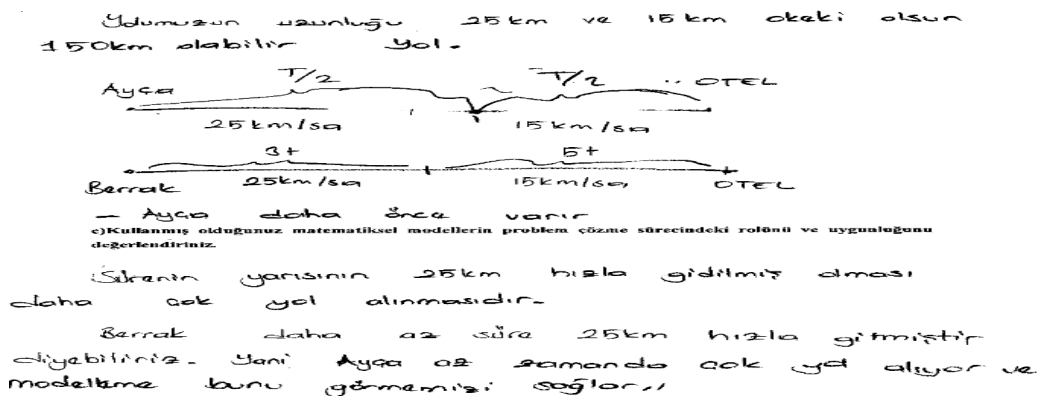 Yolumuzun uzunluğu 25 km ve 15 km okeki olsun
150km olabilir yol.
T/2 T/2
Ayça OTEL
25 km/sa 15 km/sa
3t 5t
Berrak 25km/sa 15km/sa OTEL
- Ayça daha önce varır
c)Kullanmış olduğunuz matematiksel modellerin problem çözme sürecindeki rolünü ve uygunluğunu
değerlendiriniz.
Sürenin yarısının 25km hızla gidilmiş olması
daha çok yol alınmasıdır.
Berrak daha az süre 25km hızla gitmiştir
diyebiliriz. Yani Ayça az zamanda çok yol alıyor ve
modelleme bunu görmemizi sağlar.,